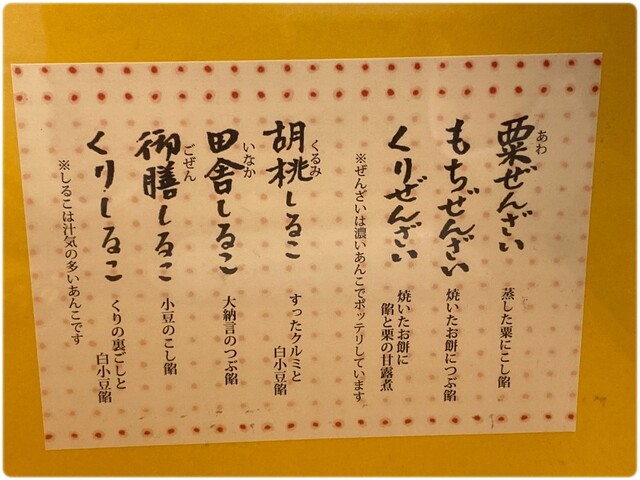 粟ぜんざい
あわ
蒸した粟にこし餡
もちぜんざい
焼いたお餅につぶ餡
くりぜんざい
焼いたお餅に
餡と栗の甘露煮
※ぜんざいは濃いあんこでポッテリしています
胡桃しるこ
くるみ
すったクルミと
白小豆餡
田舎しるこ
いなか
大納言のつぶ餡
御膳しるこ
ごぜん
小豆のこし餡
くりしるこ
くりの裏ごしと
白小豆餡
※しるこは汁気の多いあんこです